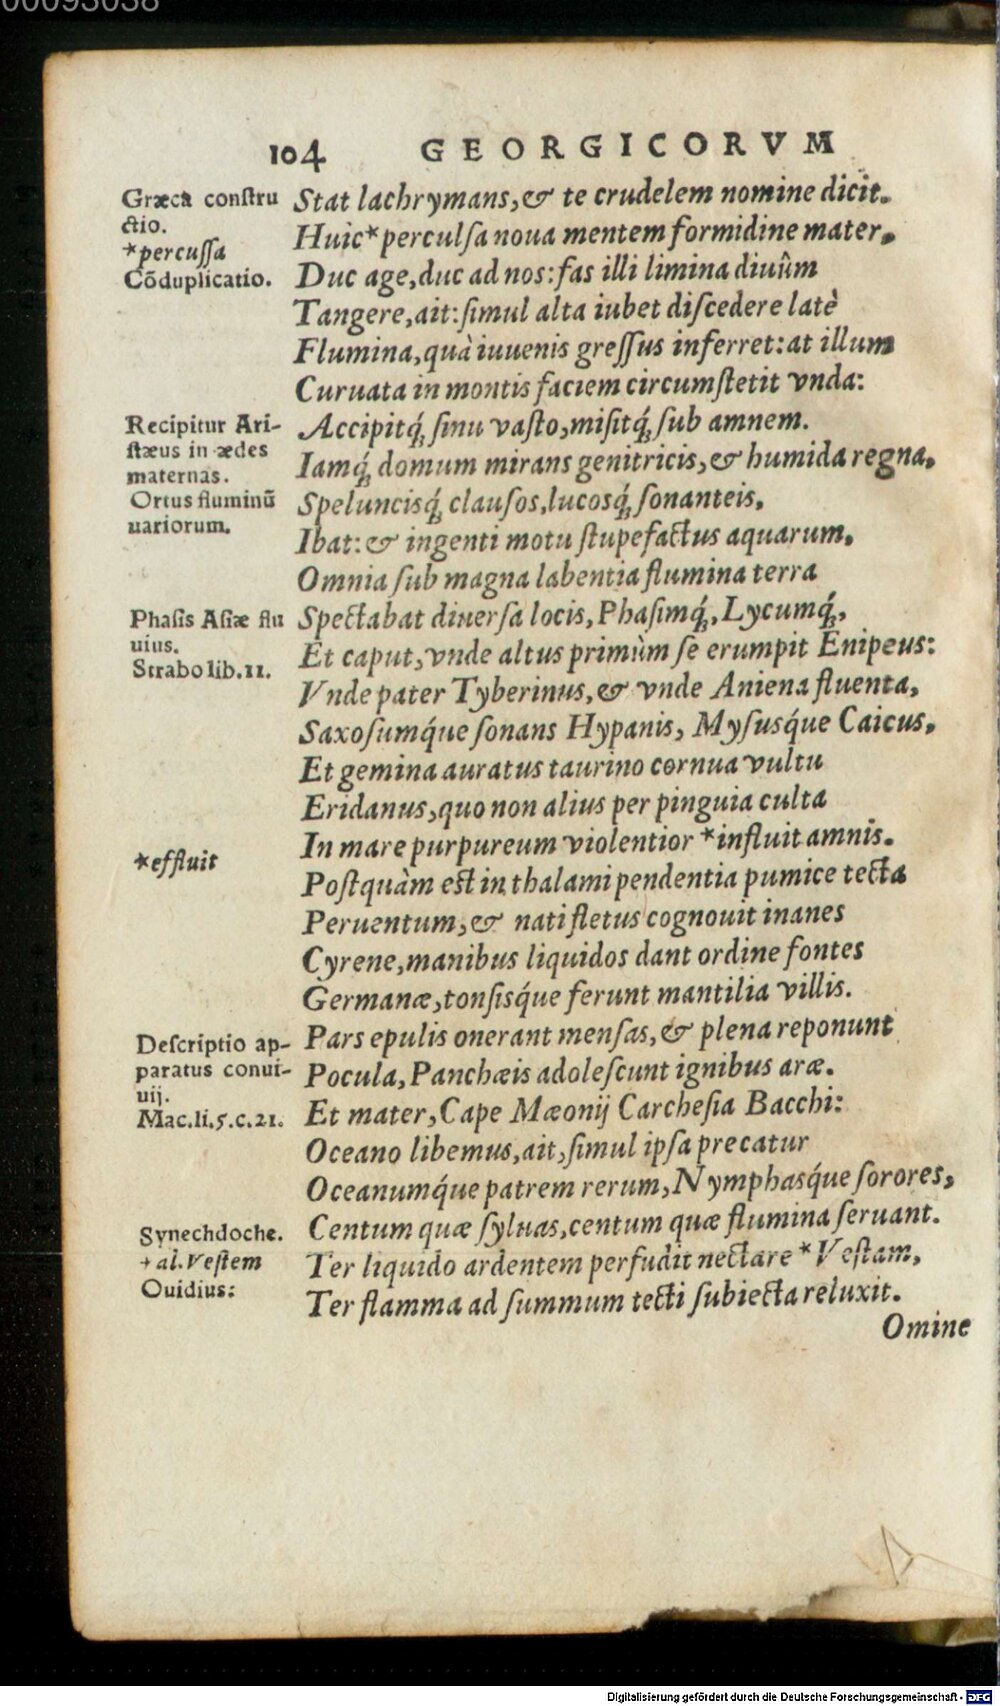 00093038
104 GEORGICORVM
Græca constru
ctio.
*percussa
Cōduplicatio.
Stat lachrymans, & te crudelem nomine dicit.
Huic* perculsa noua mentem formidine mater,
Duc age, duc ad nos: fas illi limina diuûm
Tangere, ait: simul alta iubet discedere latè
Flumina, quà iuuenis gressus inferret: at illum
Curuata in montis faciem circumstetit vnda:
Recipitur Ari-
stæus in ædes
maternas.
Ortus fluminũ
uariorum.
Accipitq́; sinu vasto, misitq́; sub amnem.
Iamq́; domum mirans genitricis, & humida regna,
Speluncisq́; clausos, lucosq́; sonanteis,
Ibat: & ingenti motu stupefactus aquarum,
Omnia sub magna labentia flumina terra
Phasis Asiæ flu
uius.
Strabo lib. 11.
Spectabat diuersa locis, Phasimq́;, Lycumq́;,
Et caput, vnde altus primùm se erumpit Enipeus:
Vnde pater Tyberinus, & vnde Aniena fluenta,
Saxosumq́ue sonans Hypanis, Mysusq́ue Caicus,
Et gemina auratus taurino cornua vultu
Eridanus, quo non alius per pinguia culta
In mare purpureum violentior *influit amnis.
*effluit
Postquàm est in thalami pendentia pumice tecta
Peruentum, & nati fletus cognouit inanes
Cyrene, manibus liquidos dant ordine fontes
Germanæ, tonsisq́ue ferunt mantilia villis.
Descriptio ap-
paratus conui-
uij.
Mac. li. 5. c. 21.
Pars epulis onerant mensas, & plena reponunt
Pocula, Panchæis adolescunt ignibus aræ.
Et mater, Cape Mæonij Carchesia Bacchi:
Oceano libemus, ait, simul ipsa precatur
Oceanumq́ue patrem rerum, Nymphasq́ue sorores,
Centum quæ syluas, centum quæ flumina seruant.
Synechdoche.
+al. Vestem
Ouidius:
Ter liquido ardentem perfudit nectare *Vestam,
Ter flamma ad summum tecti subiecta reluxit.
Omine
Digitalisierung gefördert durch die Deutsche Forschungsgemeinschaft - DFG